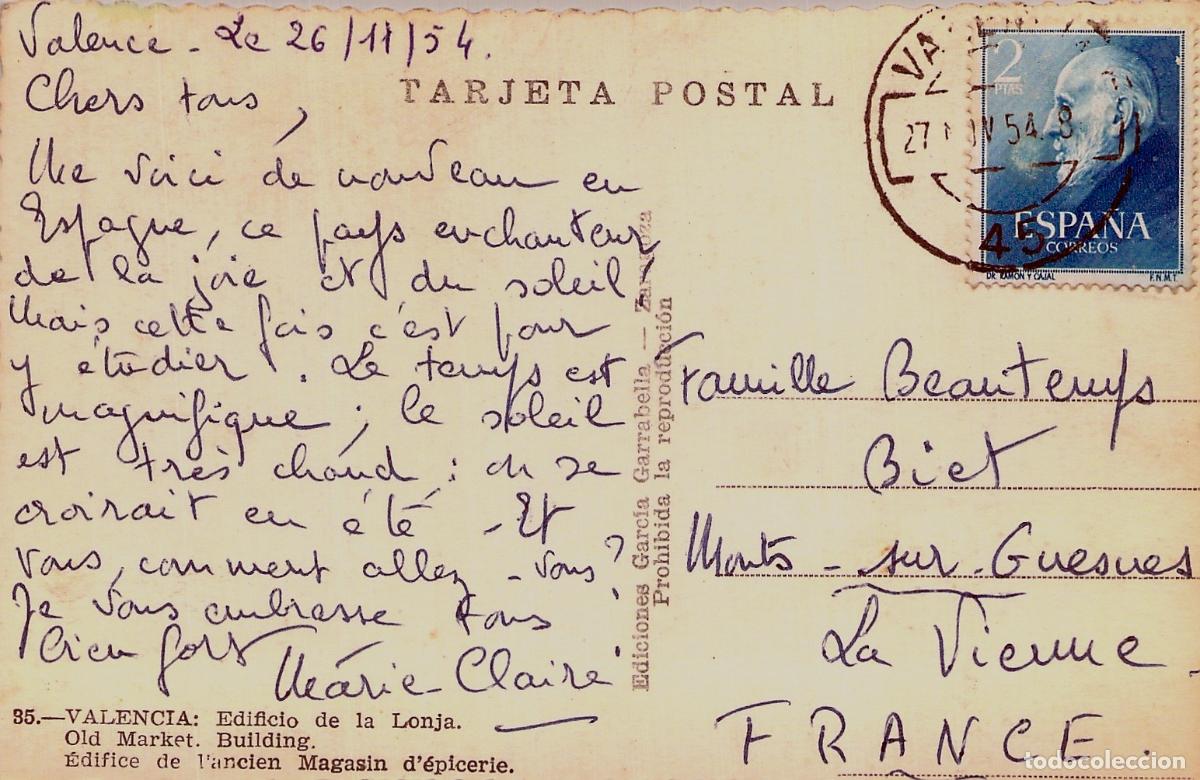 Valence - Le 26/11/54.
Chers tous,
Me voici de nouveau en
Espagne, ce pays enchanteur
de la joie et du soleil,
Mais cette fois c'est pour
y étudier. Le temps est
magnifique ; le soleil
est très chaud : on se
croirait en été - Et
vous, comment allez-vous ?
Je vous embrasse tous
bien fort
Marie-Claire
35.—VALENCIA: Edificio de la Lonja.
Old Market. Building.
Édifice de l'ancien Magasin d'épicerie.
TARJETA POSTAL
Ediciones García Garrabella — Zaragoza
Prohibida la reproducción
27 NOV 54. 8
45
2
PTAS
ESPAÑA
CORREOS
DR. RAMON Y CAJAL
F.N.M.T.
Famille Beautemps
Biet
Monts-sur-Guesnes
La Vienne
FRANCE.
todocoleccion